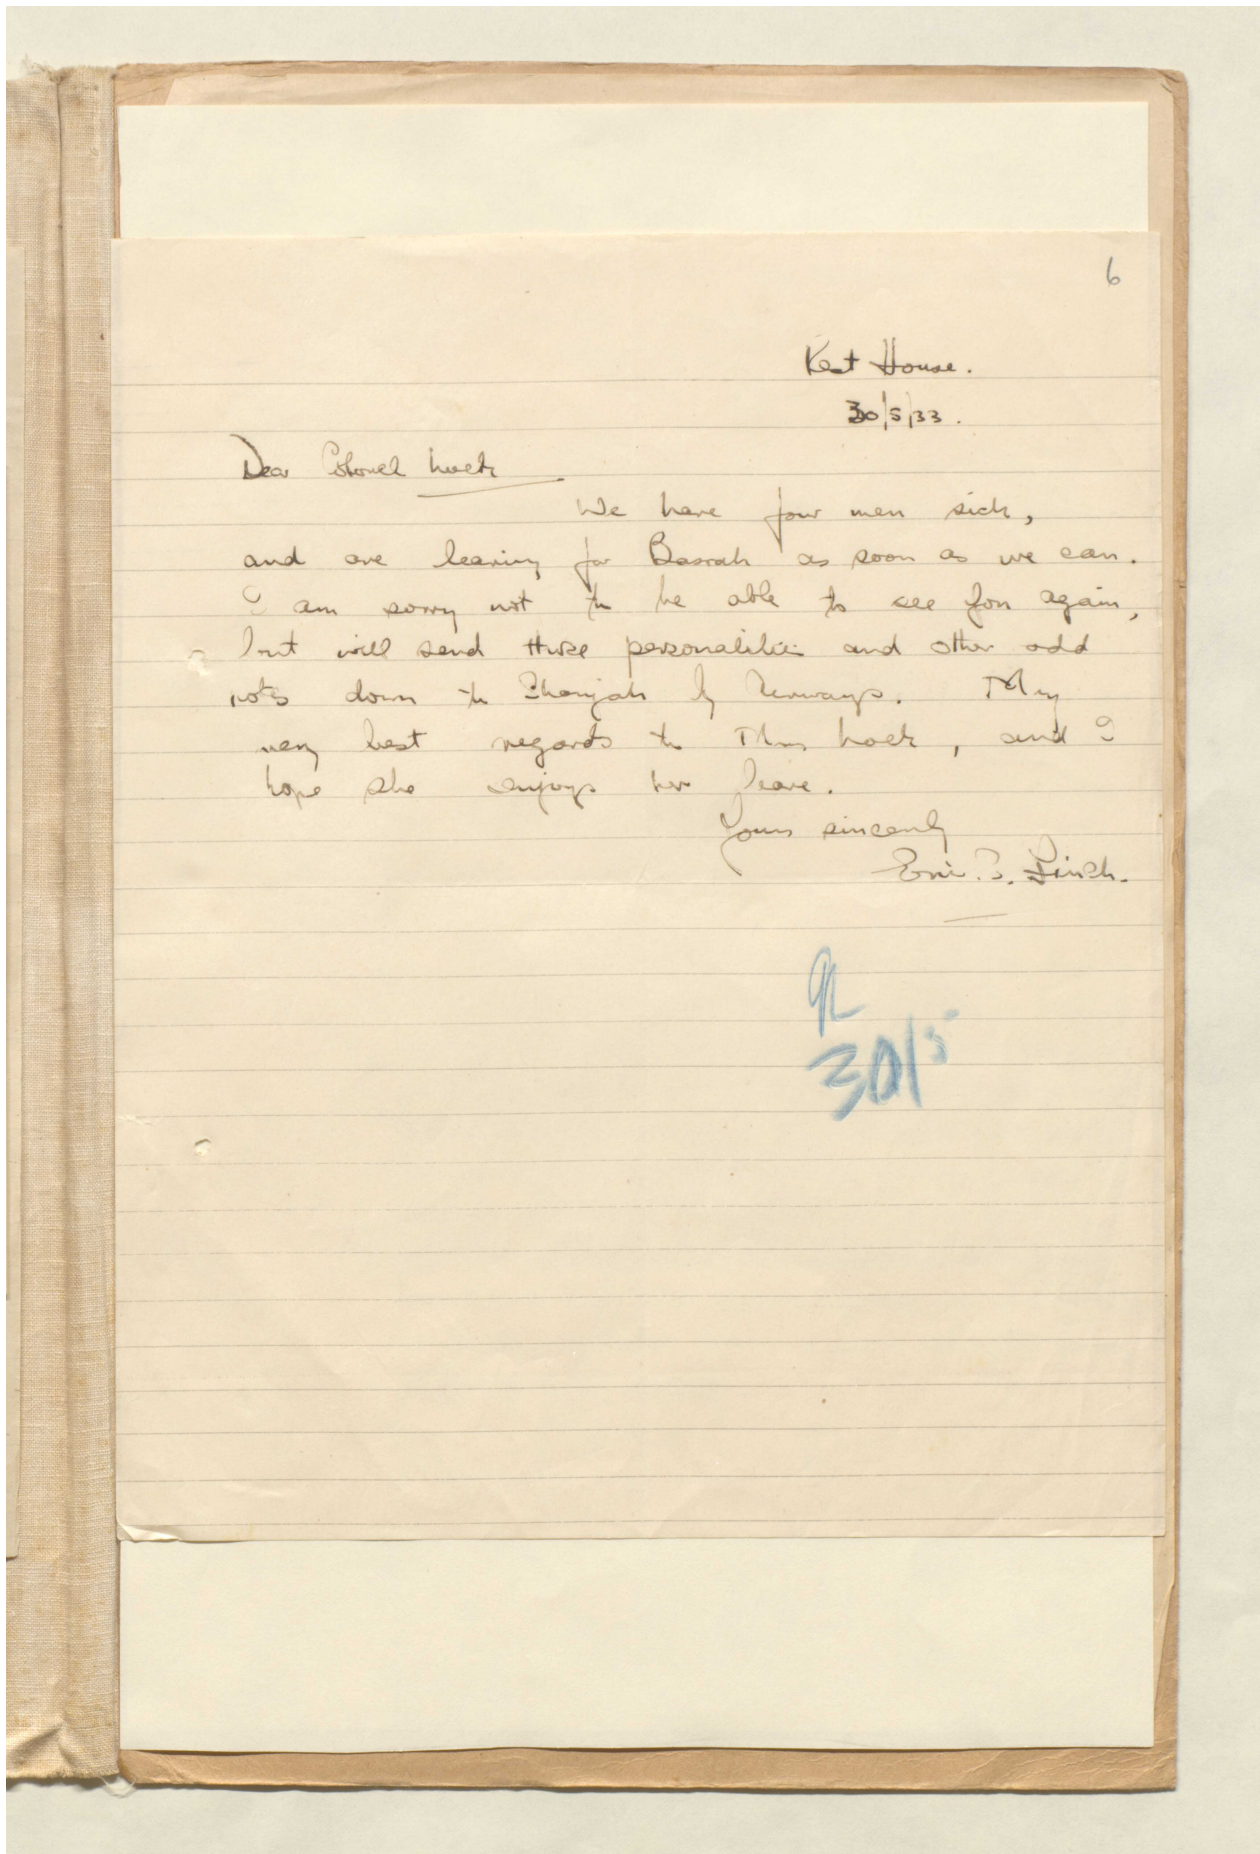 6
Kent House.
30/5/33.
Dear Colonel Loch
We have four men sick,
and are leaving for Basrah as soon as we can.
I am sorry not to be able to see you again,
but will send those personalities and other odd
notes down to Sharjah by Airways. My
very best regards to Mrs Loch, and I
hope she enjoys her leave.
Yours sincerely
Eric. Finch.
GL
30/5